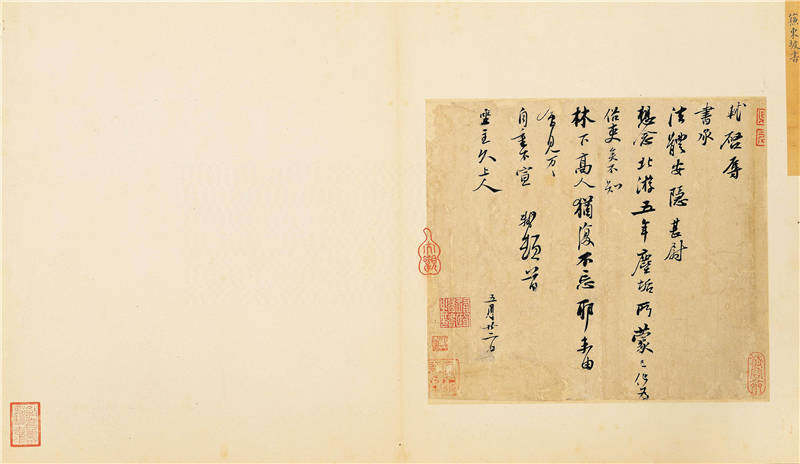 蘇東坡書
軾啓辱
書承
法體安隱甚尉
想念北游五年塵垢所蒙已化為
俗吏矣不知
林下高人猶復不忘耶未由
會見万万
自重不宣 軾頓首
坐主久上人
五月廿二日